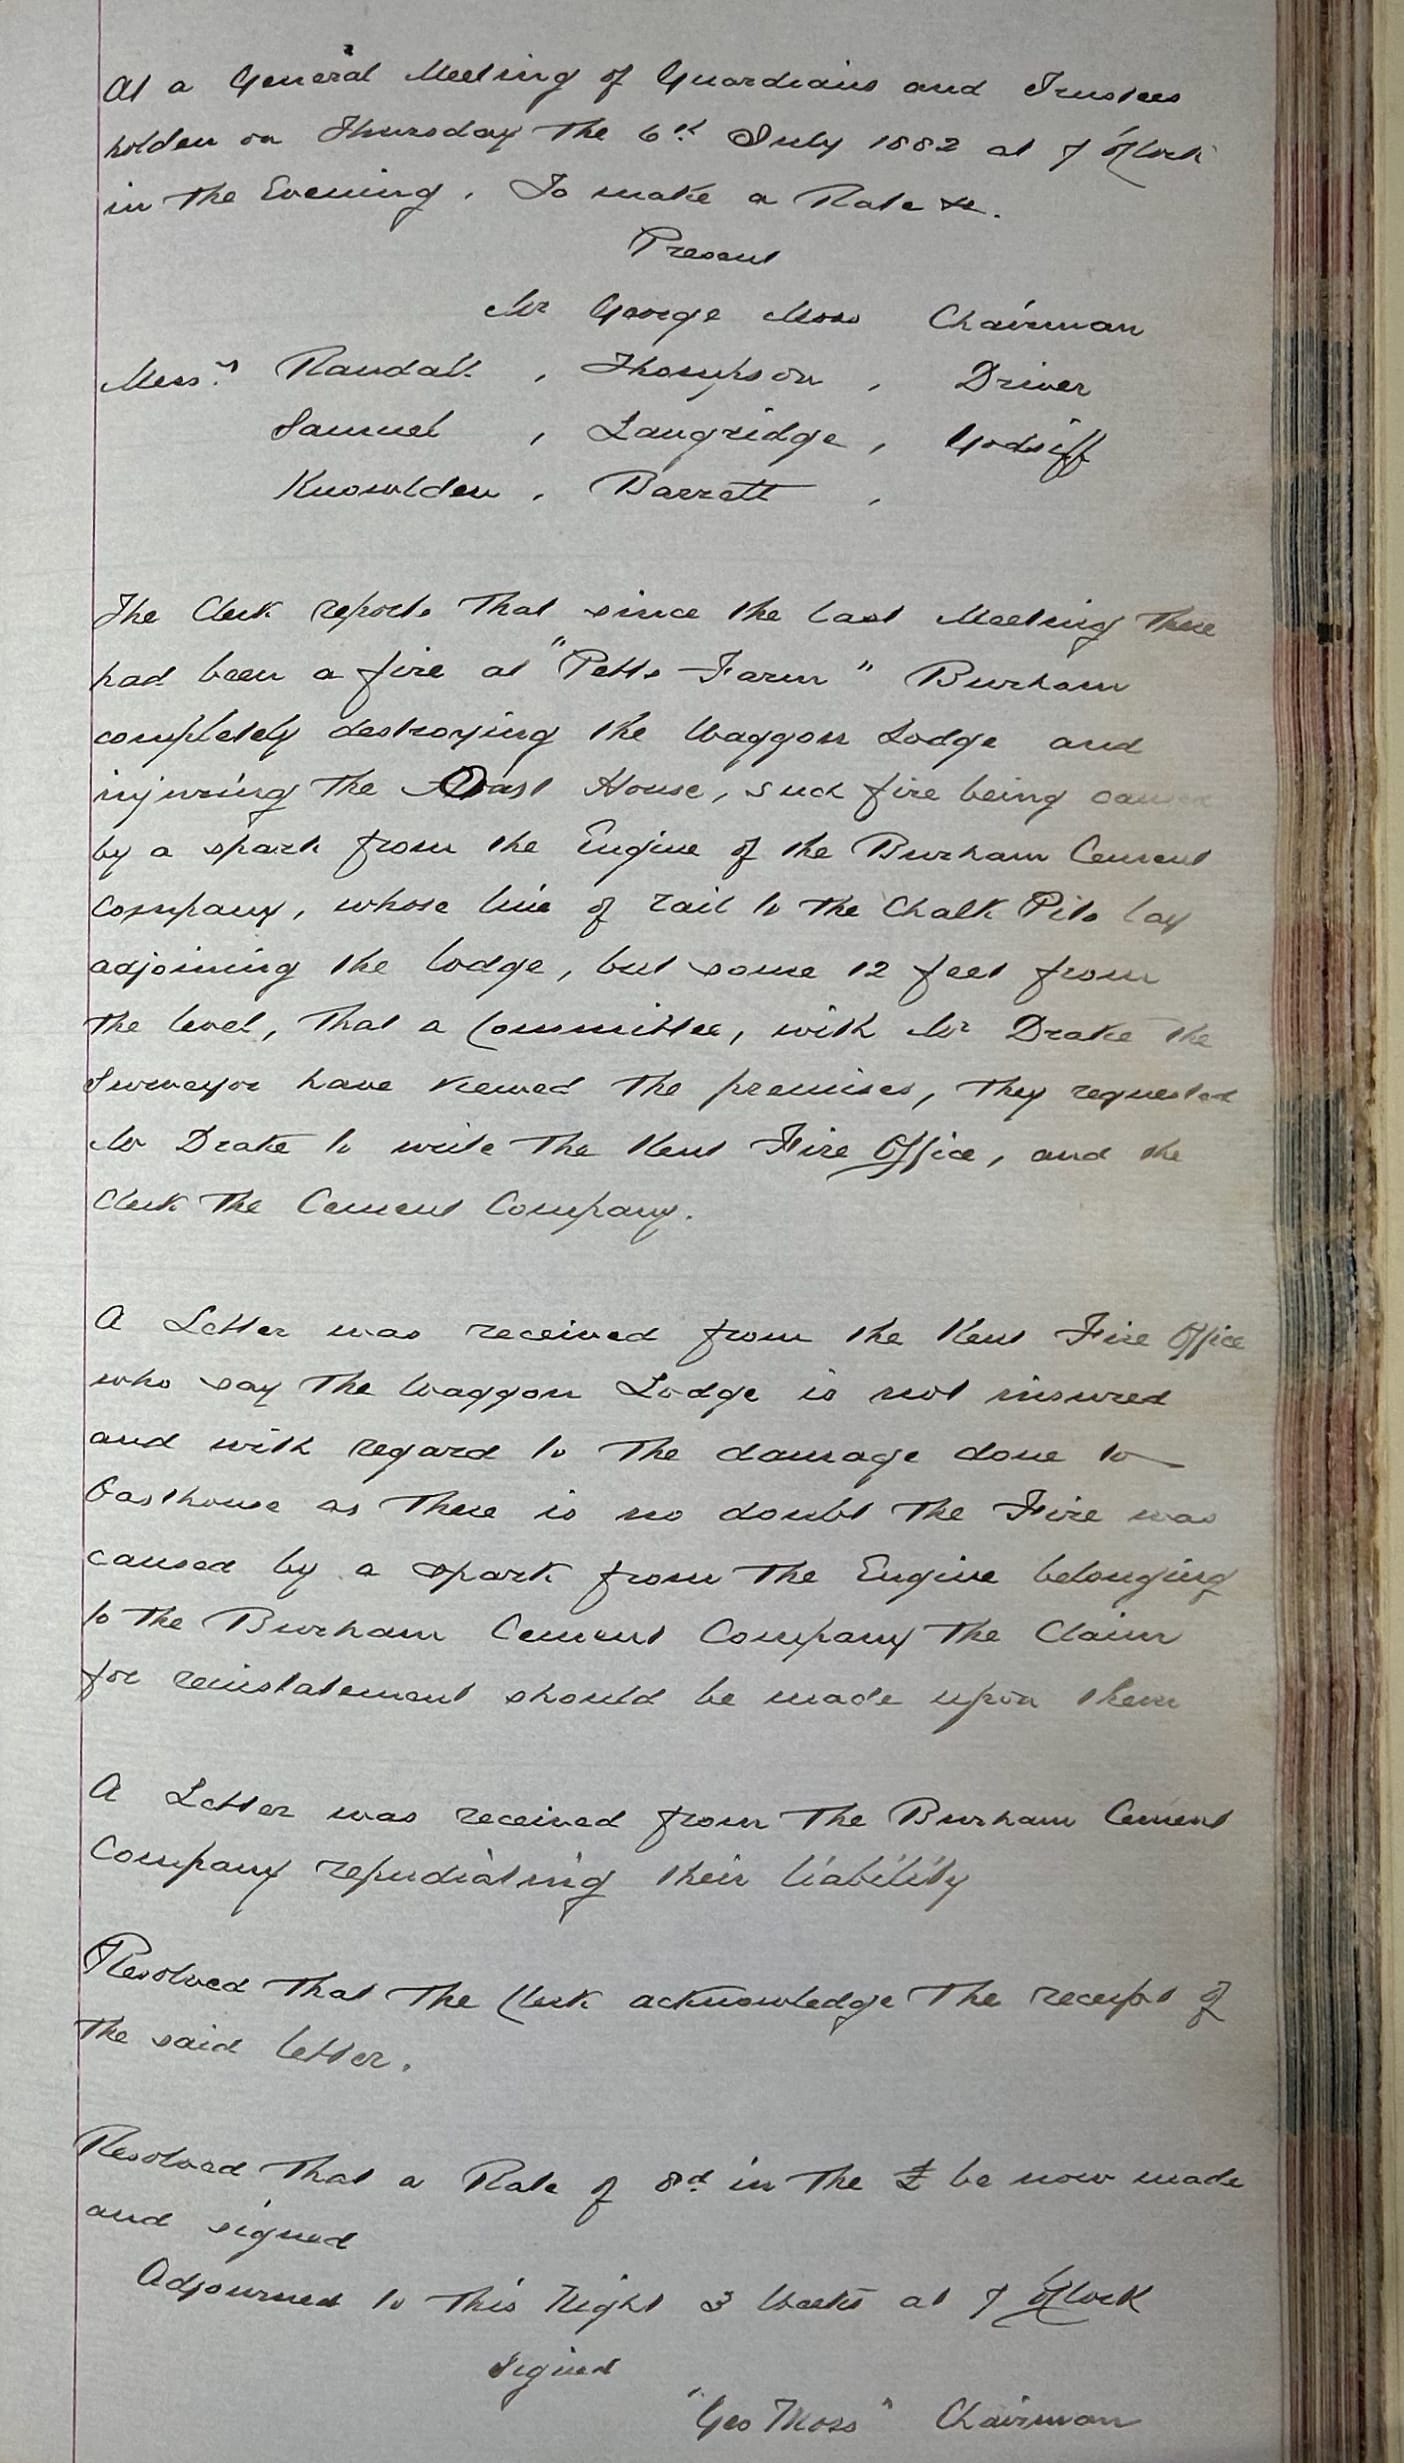 At a General Meeting of Guardians and Trustees
holden on Thursday the 6th July 1882 at 7 o'Clock
in the Evening. To make a Rate &c.
Present
Mr George Moss Chairman
Messrs Randall, Thompson, Driver
Samuel, Langridge, Godsiff
Knowlden, Barrett,
The Clerk reports that since the last Meeting there
had been a fire at "Petts Farm" Burham
completely destroying the Waggon Lodge and
injuring the Oast House, such fire being caused
by a spark from the Engine of the Burham Cement
Company, whose line of rail to the Chalk Pits lay
adjoining the lodge, but some 12 feet from
the level, that a Committee, with Mr Drake the
Surveyor have viewed the premises, they requested
Mr Drake to write the Kent Fire Office, and the
Clerk the Cement Company.
A Letter was received from the Kent Fire Office
who say the Waggon Lodge is not insured
and with regard to the damage done to
Oasthouse as there is no doubt the Fire was
caused by a spark from the Engine belonging
to the Burham Cement Company the Claim
for reinstatement should be made upon them
A Letter was received from the Burham Cement
Company repudiating their liability
Resolved that the Clerk acknowledge the receipt of
the said letter.
Resolved that a Rate of 8d in the £ be now made
and signed
Adjourned to this Night 3 Weeks at 7 o'Clock
Signed
"Geo Moss" Chairman